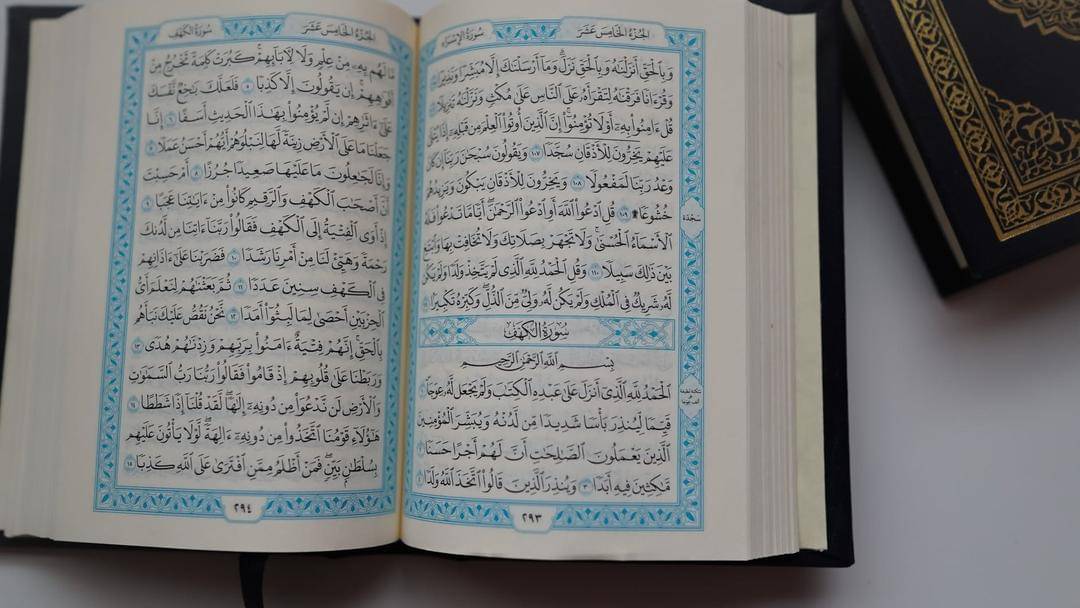 الجزء الخامس عشر
سورة الإسراء
وَبِٱلْحَقِّ أَنزَلْنَٰهُ وَبِٱلْحَقِّ نَزَلَ ۗ وَمَآ أَرْسَلْنَٰكَ إِلَّا مُبَشِّرًا وَنَذِيرًا
وَقُرْءَانًا فَرَقْنَٰهُ لِتَقْرَأَهُۥ عَلَى ٱلنَّاسِ عَلَىٰ مُكْثٍ وَنَزَّلْنَٰهُ تَنزِيلًا
قُلْ ءَامِنُوا۟ بِهِۦٓ أَوْ لَا تُؤْمِنُوٓا۟ ۚ إِنَّ ٱلَّذِينَ أُوتُوا۟ ٱلْعِلْمَ مِن قَبْلِهِۦٓ إِذَا يُتْلَىٰ
عَلَيْهِمْ يَخِرُّونَ لِلْأَذْقَانِ سُجَّدًا ١٠٧ وَيَقُولُونَ سُبْحَٰنَ رَبِّنَآ إِن كَانَ
وَعْدُ رَبِّنَا لَمَفْعُولًا ١٠٨ وَيَخِرُّونَ لِلْأَذْقَانِ يَبْكُونَ وَيَزِيدُهُمْ
خُشُوعًا ۩ ١٠٩ قُلِ ٱدْعُوا۟ ٱللَّهَ أَوِ ٱدْعُوا۟ ٱلرَّحْمَٰنَ ۖ أَيًّا مَّا تَدْعُوا۟ فَلَهُ
ٱلْأَسْمَآءُ ٱلْحُسْنَىٰ ۚ وَلَا تَجْهَرْ بِصَلَاتِكَ وَلَا تُخَافِتْ بِهَا وَٱبْتَغِ
بَيْنَ ذَٰلِكَ سَبِيلًا ١١٠ وَقُلِ ٱلْحَمْدُ لِلَّهِ ٱلَّذِى لَمْ يَتَّخِذْ وَلَدًا وَلَمْ يَكُن
لَّهُۥ شَرِيكٌ فِى ٱلْمُلْكِ وَلَمْ يَكُن لَّهُۥ وَلِىٌّ مِّنَ ٱلذُّلِّ ۖ وَكَبِّرْهُ تَكْبِيرًۢا
سَجْدَة
سورة الكهف
بِسْمِ ٱللَّهِ ٱلرَّحْمَٰنِ ٱلرَّحِيمِ
ٱلْحَمْدُ لِلَّهِ ٱلَّذِىٓ أَنزَلَ عَلَىٰ عَبْدِهِ ٱلْكِتَٰبَ وَلَمْ يَجْعَل لَّهُۥ عِوَجَا
قَيِّمًا لِّيُنذِرَ بَأْسًا شَدِيدًا مِّن لَّدُنْهُ وَيُبَشِّرَ ٱلْمُؤْمِنِينَ
ٱلَّذِينَ يَعْمَلُونَ ٱلصَّٰلِحَٰتِ أَنَّ لَهُمْ أَجْرًا حَسَنًا ٢
مَّٰكِثِينَ فِيهِ أَبَدًا ٣ وَيُنذِرَ ٱلَّذِينَ قَالُوا۟ ٱتَّخَذَ ٱللَّهُ وَلَدًا
٢٩٣
الجزء الخامس عشر
سورة الكهف
مَّا لَهُم بِهِۦ مِنْ عِلْمٍ وَلَا لِءَابَآئِهِمْ ۚ كَبُرَتْ كَلِمَةً تَخْرُجُ مِنْ
أَفْوَٰهِهِمْ ۚ إِن يَقُولُونَ إِلَّا كَذِبًا ٥ فَلَعَلَّكَ بَٰخِعٌ نَّفْسَكَ
عَلَىٰٓ ءَاثَٰرِهِمْ إِن لَّمْ يُؤْمِنُوا۟ بِهَٰذَا ٱلْحَدِيثِ أَسَفًا ٦ إِنَّا
جَعَلْنَا مَا عَلَى ٱلْأَرْضِ زِينَةً لَّهَا لِنَبْلُوَهُمْ أَيُّهُمْ أَحْسَنُ عَمَلًا ٧
وَإِنَّا لَجَٰعِلُونَ مَا عَلَيْهَا صَعِيدًا جُرُزًا ٨ أَمْ حَسِبْتَ
أَنَّ أَصْحَٰبَ ٱلْكَهْفِ وَٱلرَّقِيمِ كَانُوا۟ مِنْ ءَايَٰتِنَا عَجَبًا ٩
إِذْ أَوَى ٱلْفِتْيَةُ إِلَى ٱلْكَهْفِ فَقَالُوا۟ رَبَّنَآ ءَاتِنَا مِن لَّدُنكَ
رَحْمَةً وَهَيِّئْ لَنَا مِنْ أَمْرِنَا رَشَدًا ١٠ فَضَرَبْنَا عَلَىٰٓ ءَاذَانِهِمْ
فِى ٱلْكَهْفِ سِنِينَ عَدَدًا ١١ ثُمَّ بَعَثْنَٰهُمْ لِنَعْلَمَ أَىُّ
ٱلْحِزْبَيْنِ أَحْصَىٰ لِمَا لَبِثُوٓا۟ أَمَدًا ١٢ نَّحْنُ نَقُصُّ عَلَيْكَ نَبَأَهُم
بِٱلْحَقِّ ۚ إِنَّهُمْ فِتْيَةٌ ءَامَنُوا۟ بِرَبِّهِمْ وَزِدْنَٰهُمْ هُدًى ١٣
وَرَبَطْنَا عَلَىٰ قُلُوبِهِمْ إِذْ قَامُوا۟ فَقَالُوا۟ رَبُّنَا رَبُّ ٱلسَّمَٰوَٰتِ
وَٱلْأَرْضِ لَن نَّدْعُوَا۟ مِن دُونِهِۦٓ إِلَٰهًا ۖ لَّقَدْ قُلْنَآ إِذًا شَطَطًا ١٤
هَٰٓؤُلَآءِ قَوْمُنَا ٱتَّخَذُوا۟ مِن دُونِهِۦٓ ءَالِهَةً ۖ لَّوْلَا يَأْتُونَ عَلَيْهِم
بِسُلْطَٰنٍۭ بَيِّنٍ ۖ فَمَنْ أَظْلَمُ مِمَّنِ ٱفْتَرَىٰ عَلَى ٱللَّهِ كَذِبًا ١٥
٢٩٤